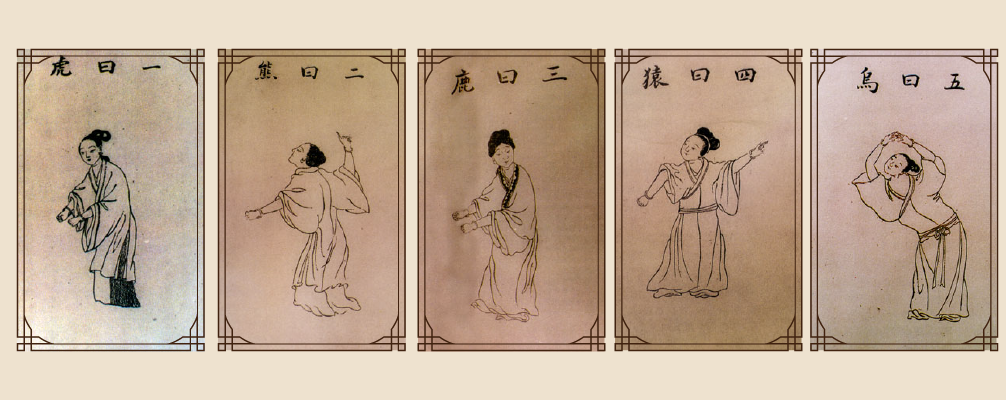 一曰虎
二曰熊
三曰鹿
四曰猿
五曰鳥